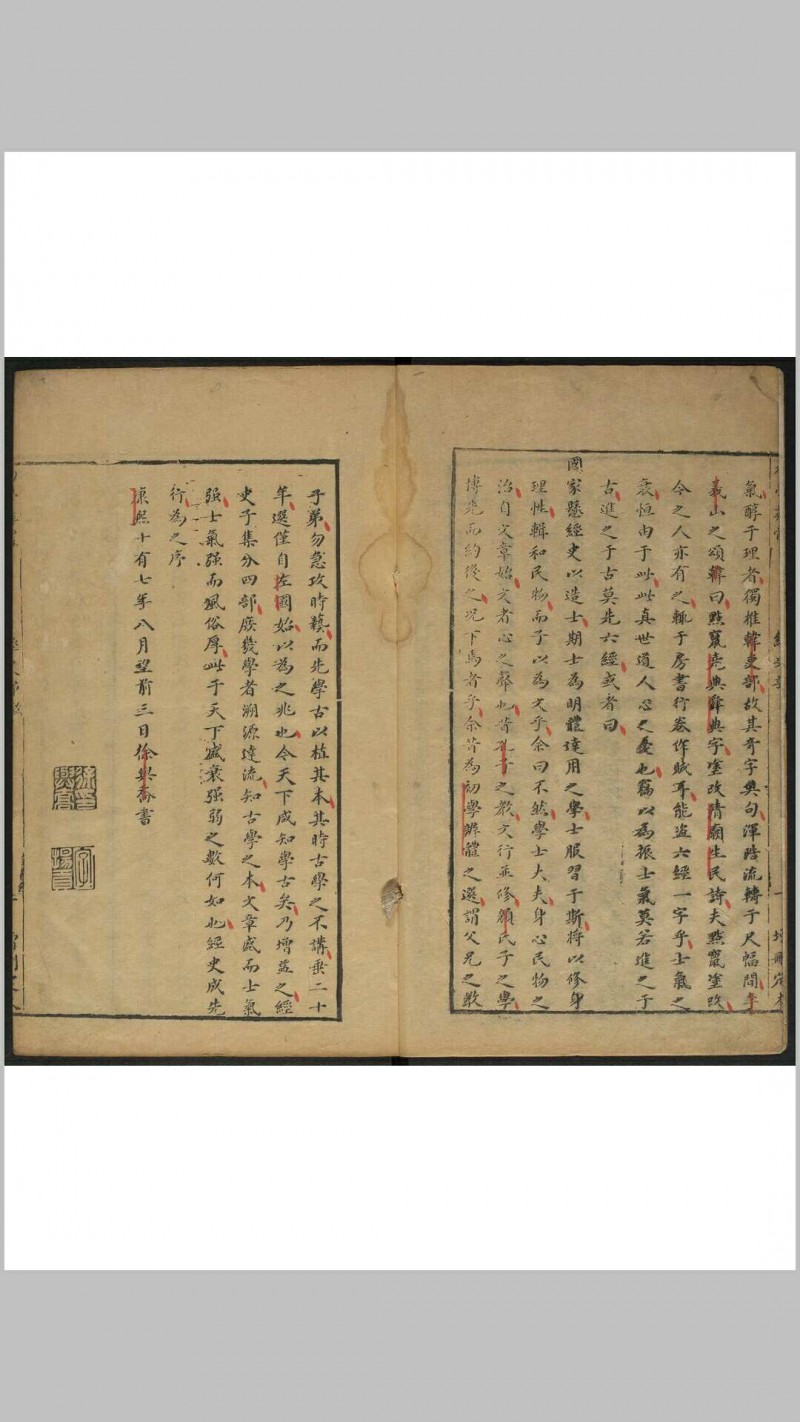 氣醇于理者獨推韓吏部故其奇字奧句渾陸流轉于尺幅間李
義山之頌韓曰點竄堯典舜典字塗改清廟生民詩夫點竄塗改
今之人亦有之輒于房書行卷作賦耳能盜六經一字乎士氣之
衰恒由于此此真世道人心之憂也竊以為振士氣莫若進之于
古進之于古莫先六經或者曰
國家懸經史以造士期士為明體達用之學士服習于斯將以修身
理性輯和民物而子以為文乎余曰不然學士大夫身心民物之
治自文章始文者心之聲也昔孔子之教文行並修顏氏子之學
博先而約後之况下焉者乎余昔為初學辨體之選謂父兄之教
子弟勿急攻時藝而先學古以植其本其時古學之不講垂二十
年選僅自左國始以為之兆也今天下咸知學古矣乃增益之經
史子集分四部庶幾學者溯源達流知古學之本文章盛而士氣
强士氣强而風俗厚此于天下盛衰强弱之數何如也經史咸先
行為之序
康熙十有七年八月望前三日徐與喬書